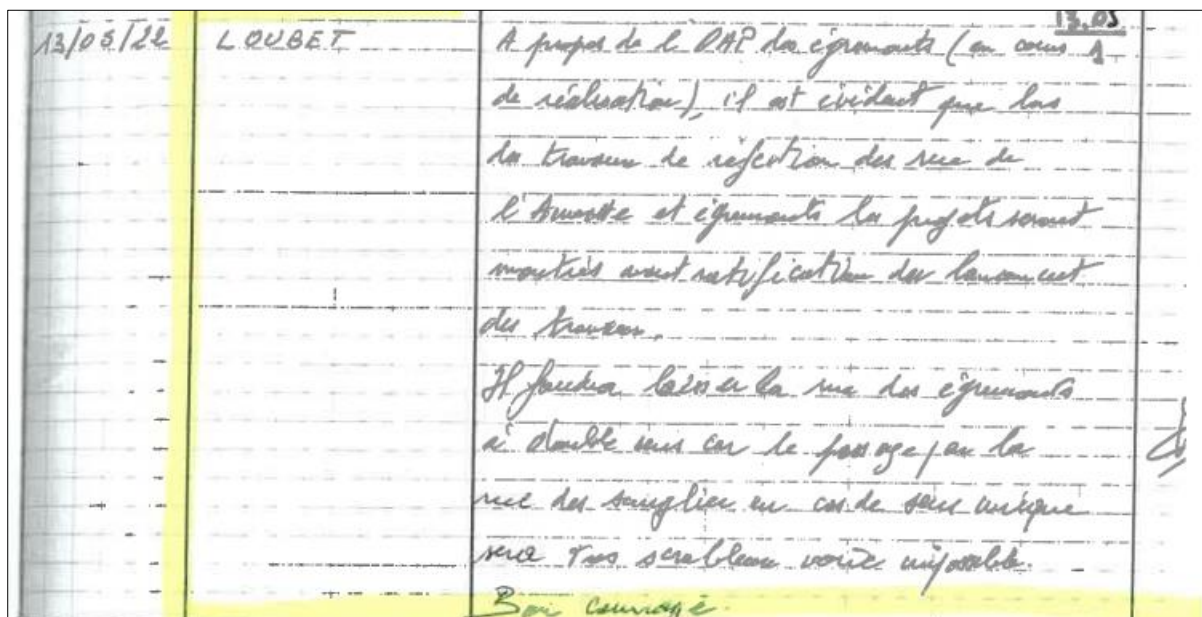 13.05
13/05/22 LOUBET A propos de l'OAP des égremonts (en cours 1
de réalisation), il est évident que lors
des travaux de réfection des rue de
l' et égremonts les projets seront
montrés avant ratification du lancement
des travaux.
Il faudra laisser la rue des égremonts
à double sens car le passage par la
rue des sanglier en cas de sens unique
sera tres voire impossible.
Bon courage.